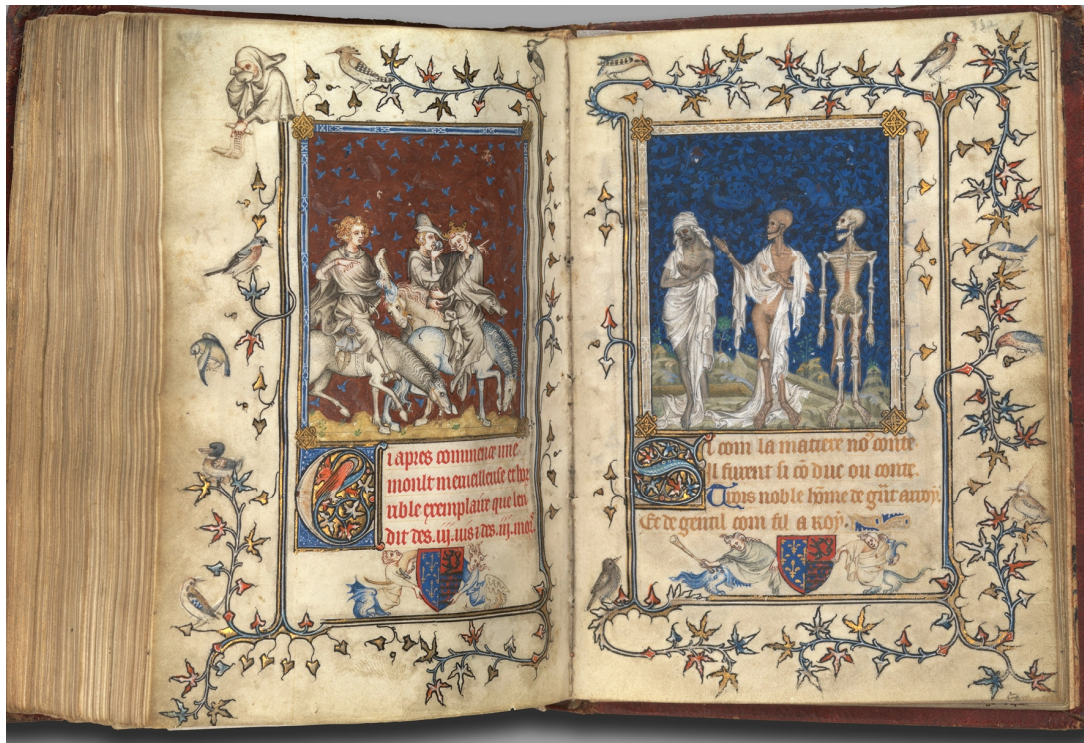 Ci apres commence une
moult merueilleuse et hor
rible exemplaire que len
dit des .iij. uis et des .iij. mors.
Si com la matiere no9 conte
Il furent si cō duc ou conte.
Trois noble hōme de gñt arroy.
Et de gentil com fil a roy.